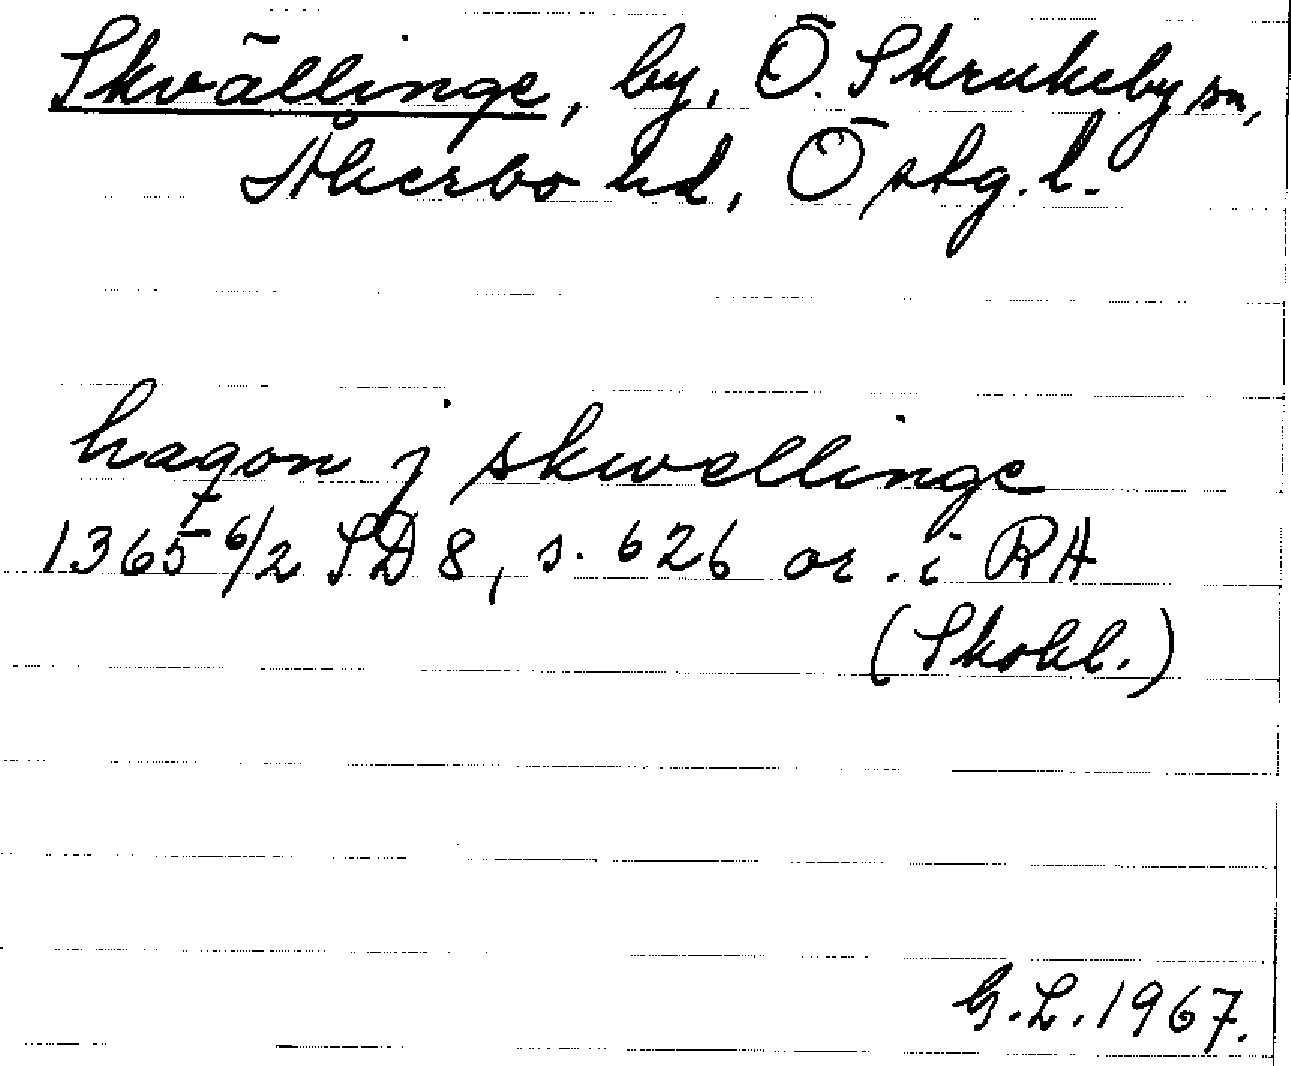 Skvällinge, by, Ö. Skrukeby sn,
Åkerbo hd, Östg. l.
haqon j skwellinge
1365 6/2 SD 8, s. 626 or. i RA
(Skokl.)
G.L. 1967.